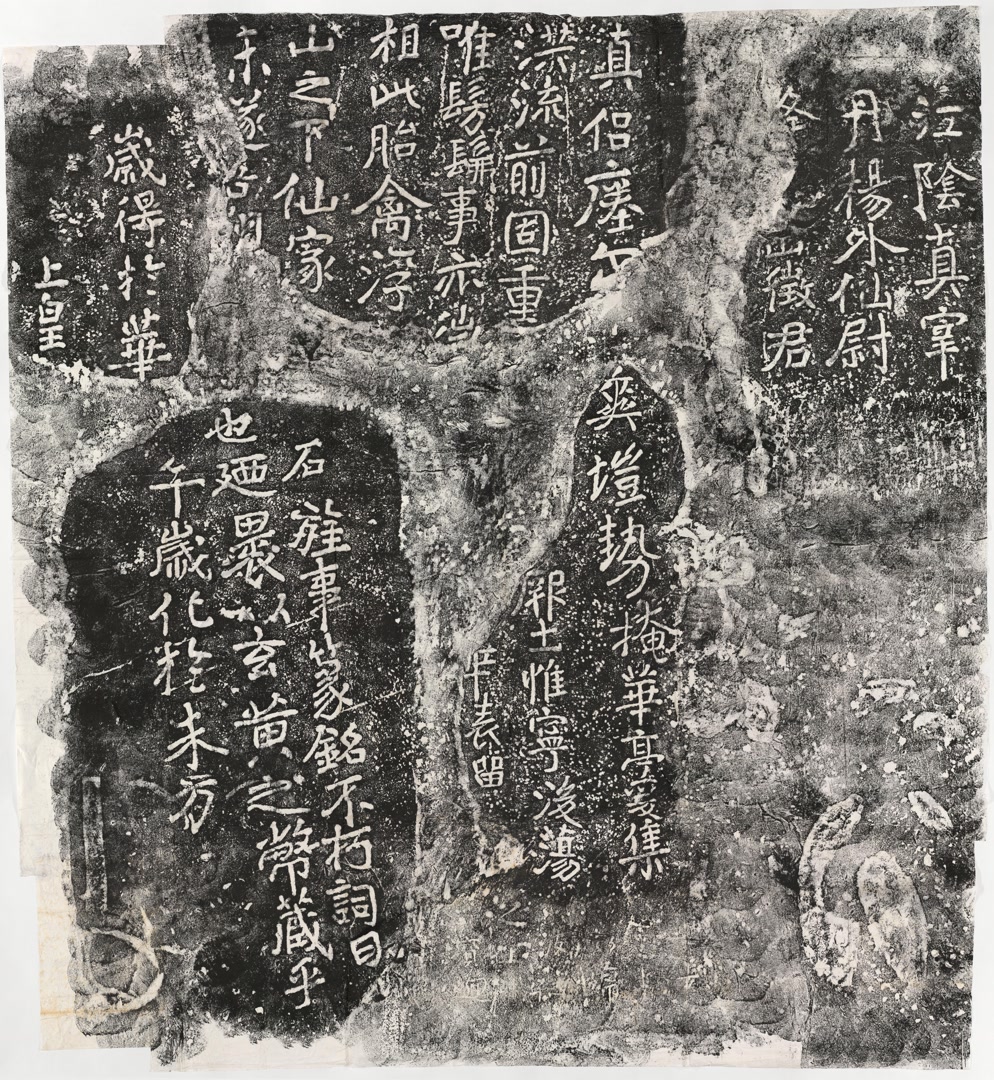 江陰真宰
丹楊外仙尉
徵君
真侶瘞尔
洪流前固重
唯髣髴事亦
相此胎禽浮
山之下仙家
未遂吾翔
歲得於華
上皇
爽塏勢掩華亭爰集
惟寧後蕩
表留
石旌事篆銘不朽詞曰
也廼裹以玄黄之幣藏乎
午歲化於朱方